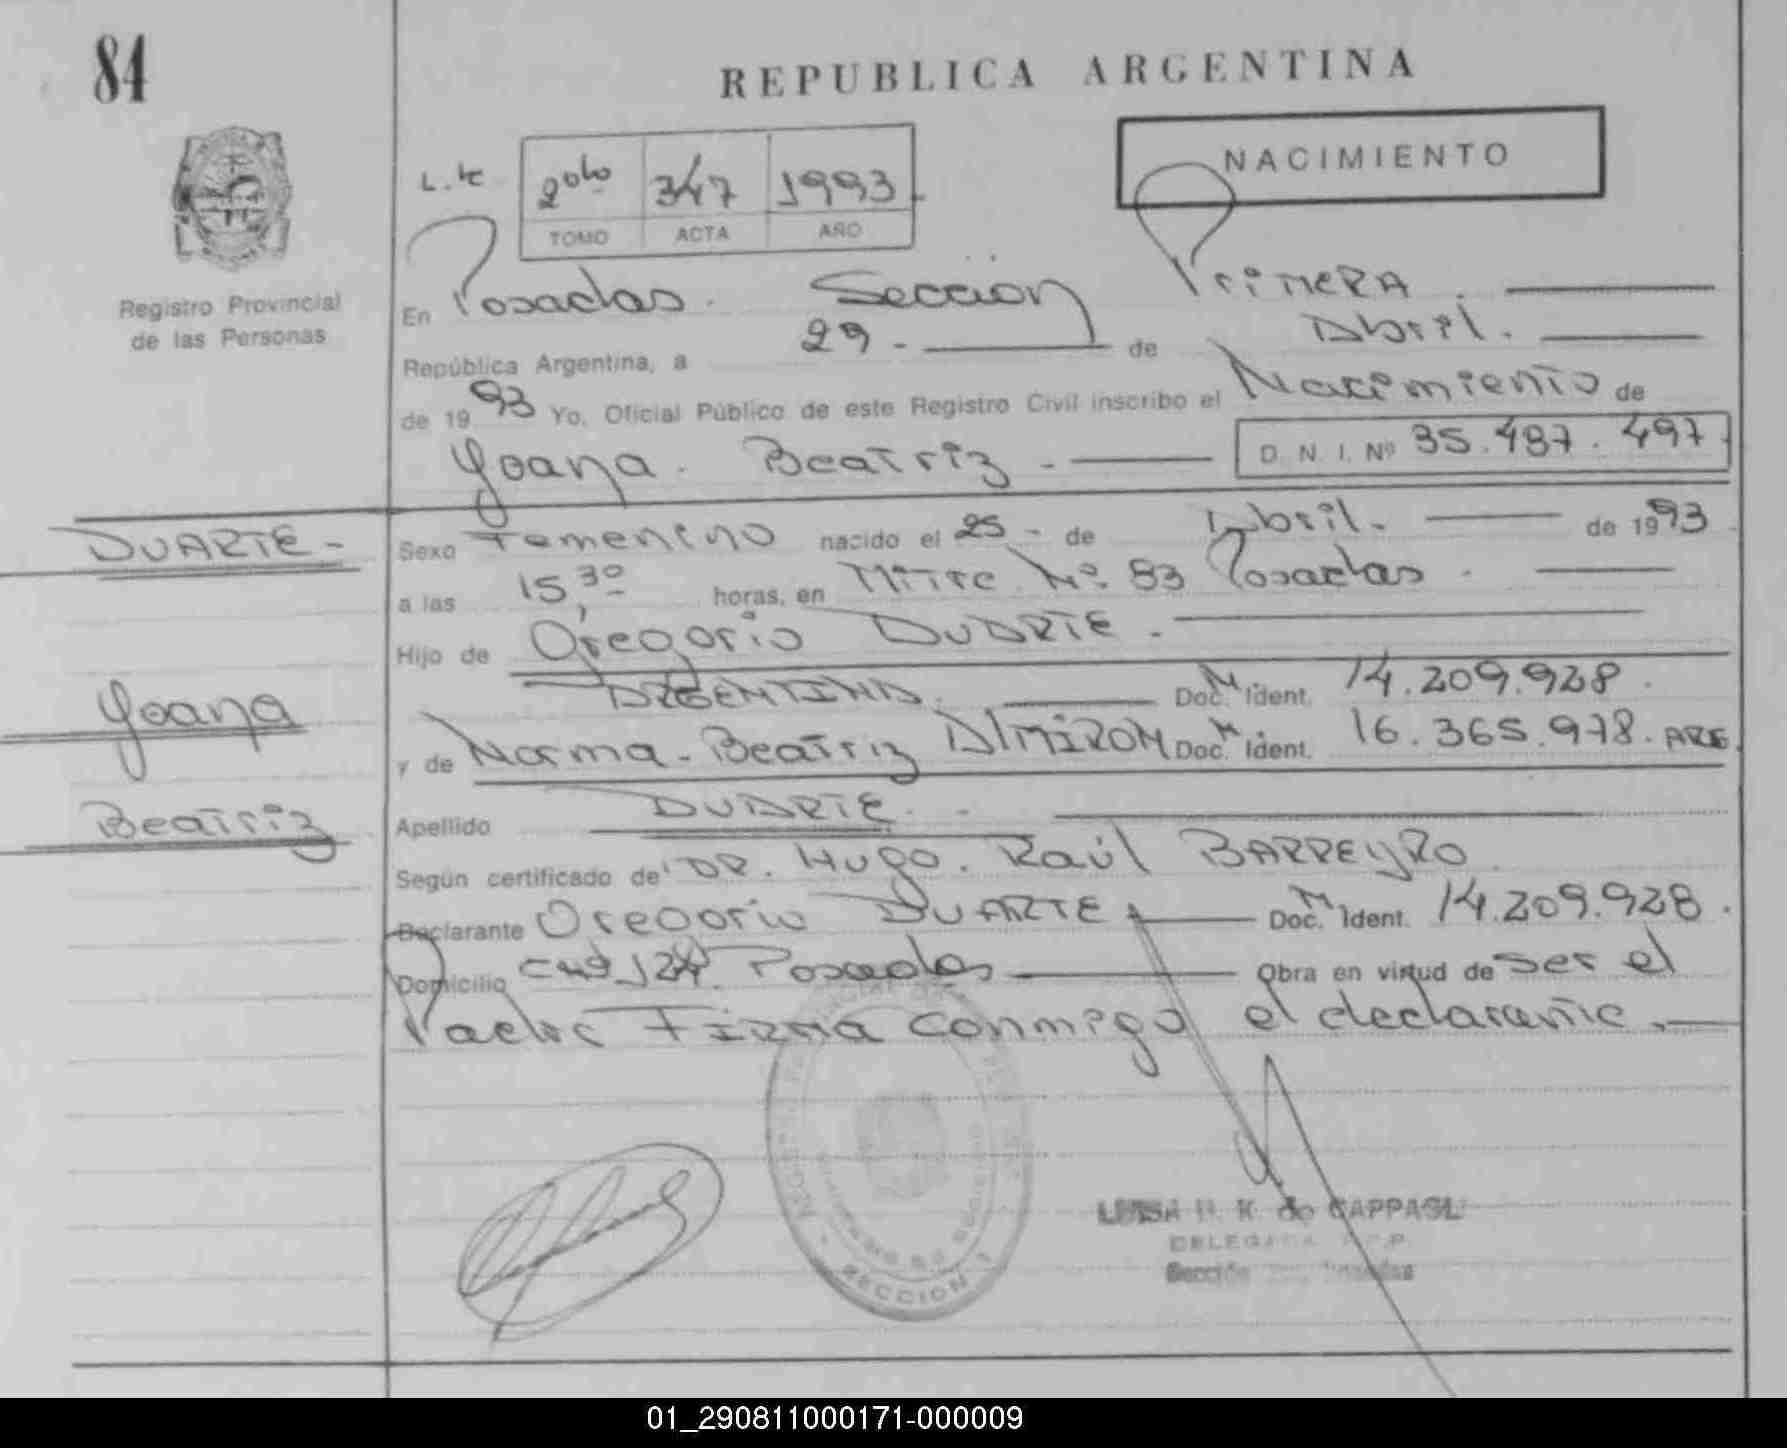 84
REPUBLICA ARGENTINA
NACIMIENTO
2º bto 347 1993
TOMO ACTA AÑO
Registro Provincial
de las Personas
En Posadas. Sección Primera.
República Argentina, a 29 - de Abril.
de 1993 Yo, Oficial Público de este Registro Civil inscribo el Nacimiento de
Yoana. Beatriz - D. N. I. Nº 35.487.497
DUARTE -
Sexo Femenino nacido el 25 - de Abril. de 1993
a las 15,30 horas, en Mitre Nº 83 Posadas.
Hijo de Gregorio DUARTE.
ARGENTINA. Doc. M. Ident. 14.209.928.
Yoana
y de Norma - Beatriz AlMIRON Doc. M. Ident. 16.365.978. ARG.
Beatriz
Apellido DUARTE.
Según certificado de DR. Hugo. Raúl BARREYRO
Declarante Gregorio DUARTE Doc. M. Ident. 14.209.928.
Domicilio Posadas Obra en virtud de ser el
Padre Firma conmigo el declarante.
LUISA H. K. de CAPPAGLI
DELEGADA R.P.P.
Sección Posadas
SECCION 1
01_290811000171-000009